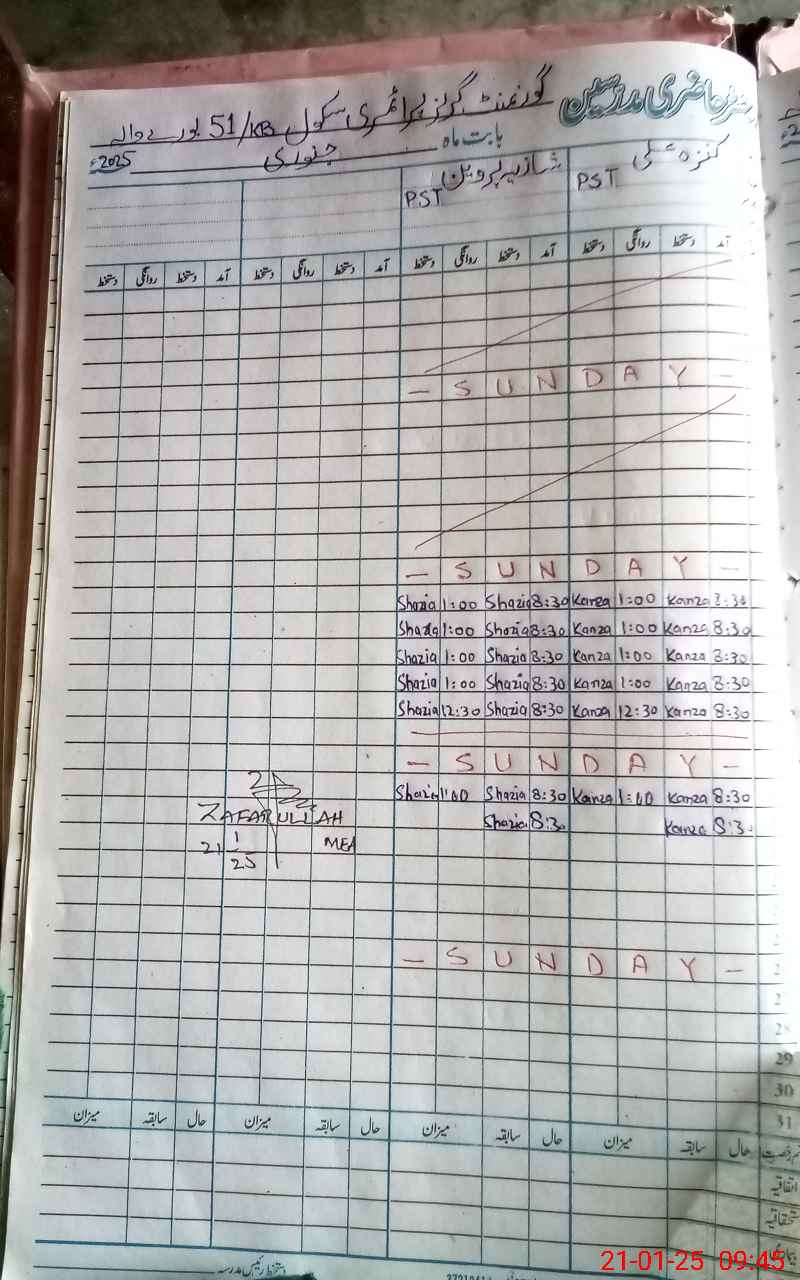 رجسٹر حاضری مدرسین گورنمنٹ گرلز پرائمری سکول 51/KB بورے والہ
بابت ماہ جنوری 2025ء
کنزہ PST شازیہ پروین PST
آمد دستخط روانگی دستخط آمد دستخط روانگی دستخط آمد دستخط روانگی دستخط آمد دستخط روانگی دستخط
— S U N D A Y —
— S U N D A Y —
Shazia 1:00 Shazia 8:30 Kanza 1:00 Kanza 8:30
Shazia 1:00 Shazia 8:30 Kanza 1:00 Kanza 8:30
Shazia 1:00 Shazia 8:30 Kanza 1:00 Kanza 8:30
Shazia 1:00 Shazia 8:30 Kanza 1:00 Kanza 8:30
Shazia 12:30 Shazia 8:30 Kanza 12:30 Kanza 8:30
— S U N D A Y —
Shazia 1:00 Shazia 8:30 Kanza 1:00 Kanza 8:30
ZAFARULLAH Shazia 8:30 Kanza 8:3
21 1/25 MEA
— S U N D A Y —
28
29
30
31
حال سابقہ میزان حال سابقہ میزان حال سابقہ میزان حال سابقہ میزان
اتفاقیہ
دستخط رئیس مدرسہ
21-01-25 09:45